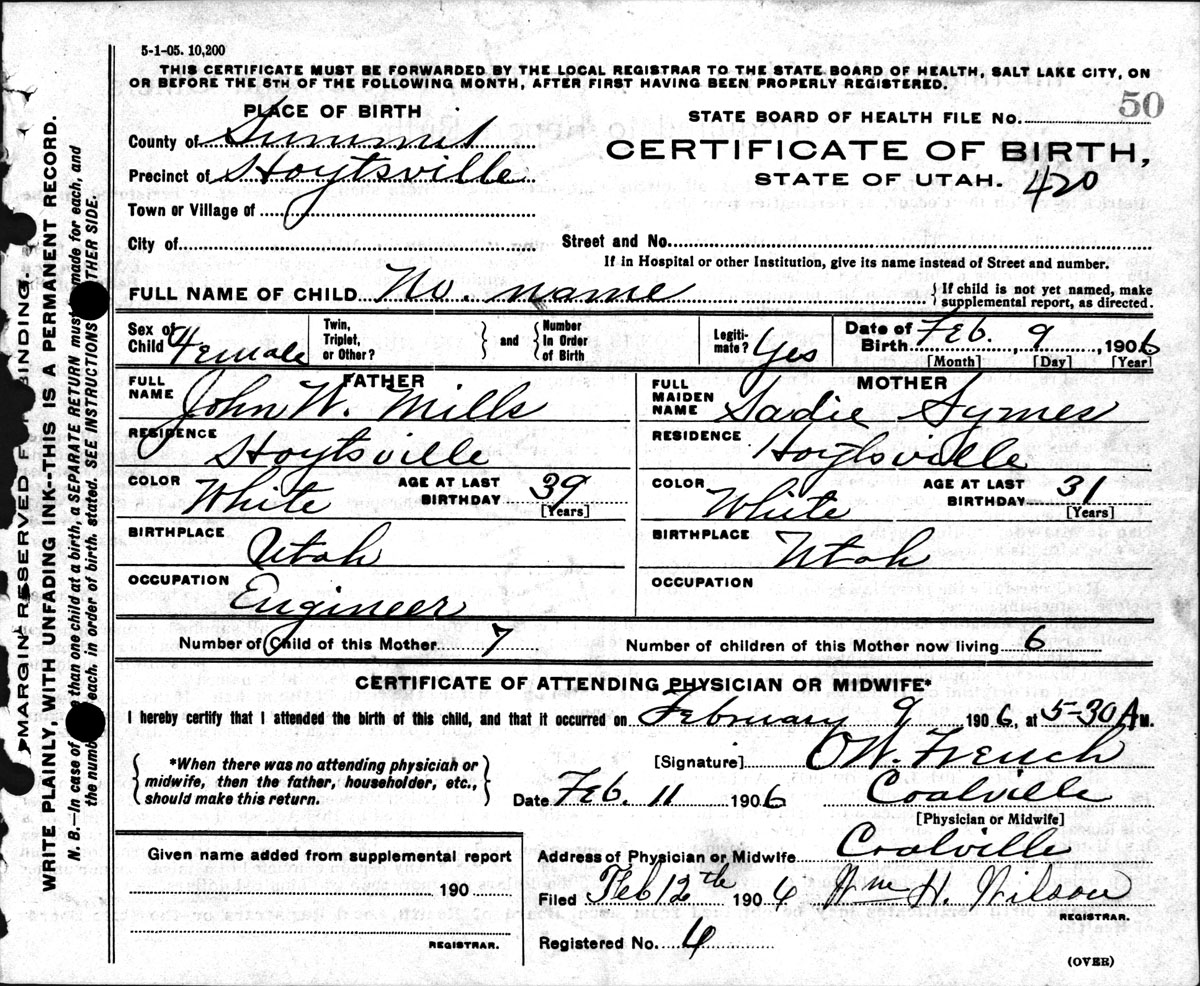 5-1-05. 10,200
THIS CERTIFICATE MUST BE FORWARDED BY THE LOCAL REGISTRAR TO THE STATE BOARD OF HEALTH, SALT LAKE CITY, ON
OR BEFORE THE 5TH OF THE FOLLOWING MONTH, AFTER FIRST HAVING BEEN PROPERLY REGISTERED.
PLACE OF BIRTH
County of Summit
Precinct of Hoytsville
Town or Village of
City of
STATE BOARD OF HEALTH FILE No. 50
CERTIFICATE OF BIRTH,
STATE OF UTAH. 420
Street and No.
If in Hospital or other Institution, give its name instead of Street and number.
FULL NAME OF CHILD No. name
If child is not yet named, make
supplemental report, as directed.
Sex of Child Female
Twin, Triplet, or Other?
and
Number In Order of Birth
Legiti-mate? Yes
Date of Birth Feb. 9, 1906
[Month] [Day] [Year]
FATHER
FULL NAME John W. Mills
RESIDENCE Hoytsville
COLOR White AGE AT LAST BIRTHDAY 39 [Years]
BIRTHPLACE Utah
OCCUPATION Engineer
MOTHER
FULL MAIDEN NAME Sadie Symes
RESIDENCE Hoytsville
COLOR White AGE AT LAST BIRTHDAY 31 [Years]
BIRTHPLACE Utah
OCCUPATION
Number of Child of this Mother 7 Number of children of this Mother now living 6
CERTIFICATE OF ATTENDING PHYSICIAN OR MIDWIFE*
I hereby certify that I attended the birth of this child, and that it occurred on February 9 1906, at 5-30 A M.
*When there was no attending physician or
midwife, then the father, householder, etc.,
should make this return.
[Signature] O W. French
Date Feb. 11 1906 Coalville
[Physician or Midwife]
Given name added from supplemental report
190
REGISTRAR.
Address of Physician or Midwife Coalville
Filed Feb 12th 1906 Wm H. Wilson
REGISTRAR.
Registered No. 4
(OVER)
MARGIN RESERVED F BINDING.
WRITE PLAINLY, WITH UNFADING INK--THIS IS A PERMANENT RECORD.
N. B.—In case of than one child at a birth, a SEPARATE RETURN must made for each, and
the numb each, in order of birth, stated. SEE INSTRUCTIONS OTHER SIDE.